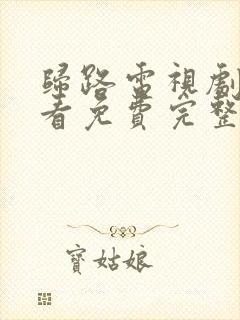 歸路電視劇
看免費完整
寶姑娘